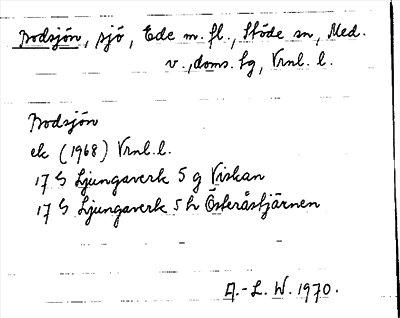 Bodsjön, sjö, Ede m. fl., Stöde sn, Med.
v., doms. fg, Vrnl. l.
Bodsjön
ek (1968) Vrnl. l.
17 G Ljungaverk 5 g Viskan
17 G Ljungaverk 5 h Österåstjärnen
A.-L. W. 1970.